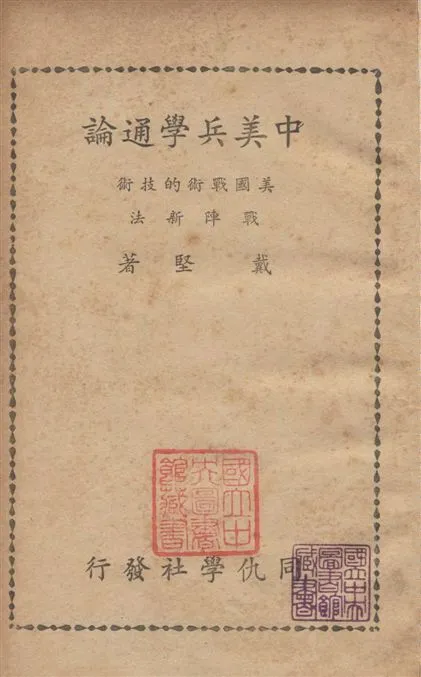 中美兵學通論
美國戰術的技術
戰陣新法
戴堅著
同仇學社發行
國立中央圖書館藏書
國立中央圖書館藏書